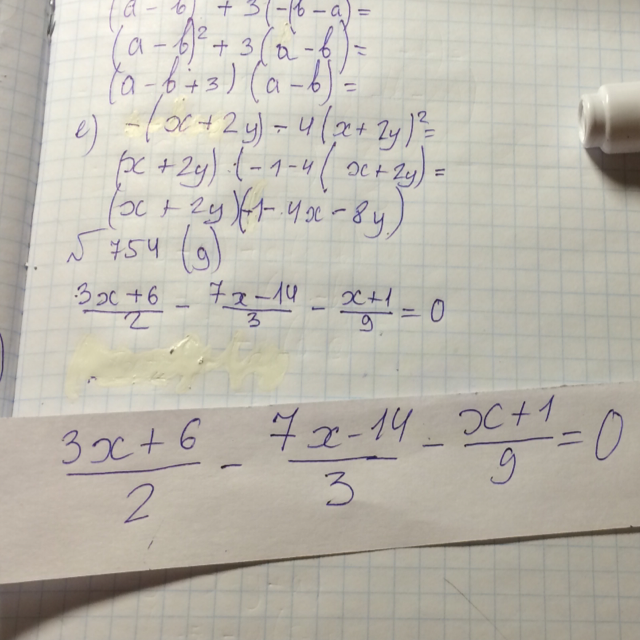 (a-b)² + 3(-(b-a)=
(a-b)² + 3(a-b)=
(a-b+3)(a-b)=
е) -(x+2y)-4(x+2y)²=
(x+2y)·(-1-4(x+2y)=
(x+2y)(-1-4x-8y)
√ 754 (g)
(3x+6)/2 - (7x-14)/3 - (x+1)/9 = 0
(3x+6)/2 - (7x-14)/3 - (x+1)/9 = 0